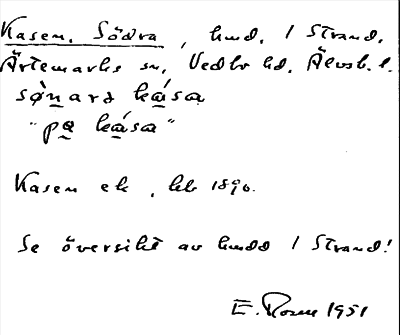 Kasen, Södra, hmd. / Strand,
Ärtemarks sn, Vedbo hd, Älvsb. l.
sø̀nars ká̱sa
"pa̱ ká̱sa"
Kasen ek, 1890.
Se översikt av hmdd / Strand!
E. Rosen 1951